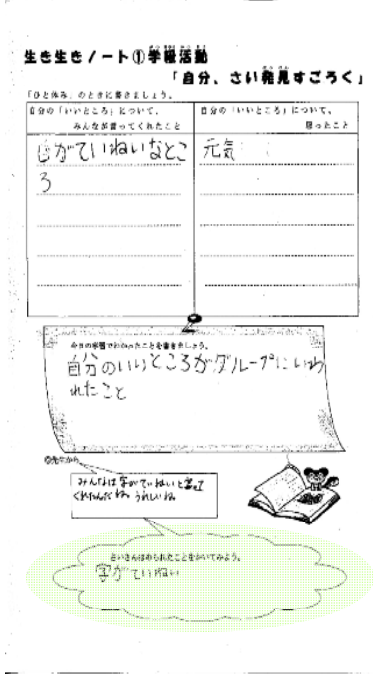 生き生きノート①学級活動
「自分、さい発見すごろく」
「ひと休み」のときに書きましょう。
自分の「いいところ」について、
みんなが言ってくれたこと
自分の「いいところ」について、
思ったこと
がていねいなとこ
ろ
元気
今日の学習でわかったことを書きましょう。
自分のいいところがグループにいわ
れたこと
◎先生から
みんなは字がていねいと言って
くれたんだね。うれしいね
さいきんほめられたことをかいてみよう。
字がていねい